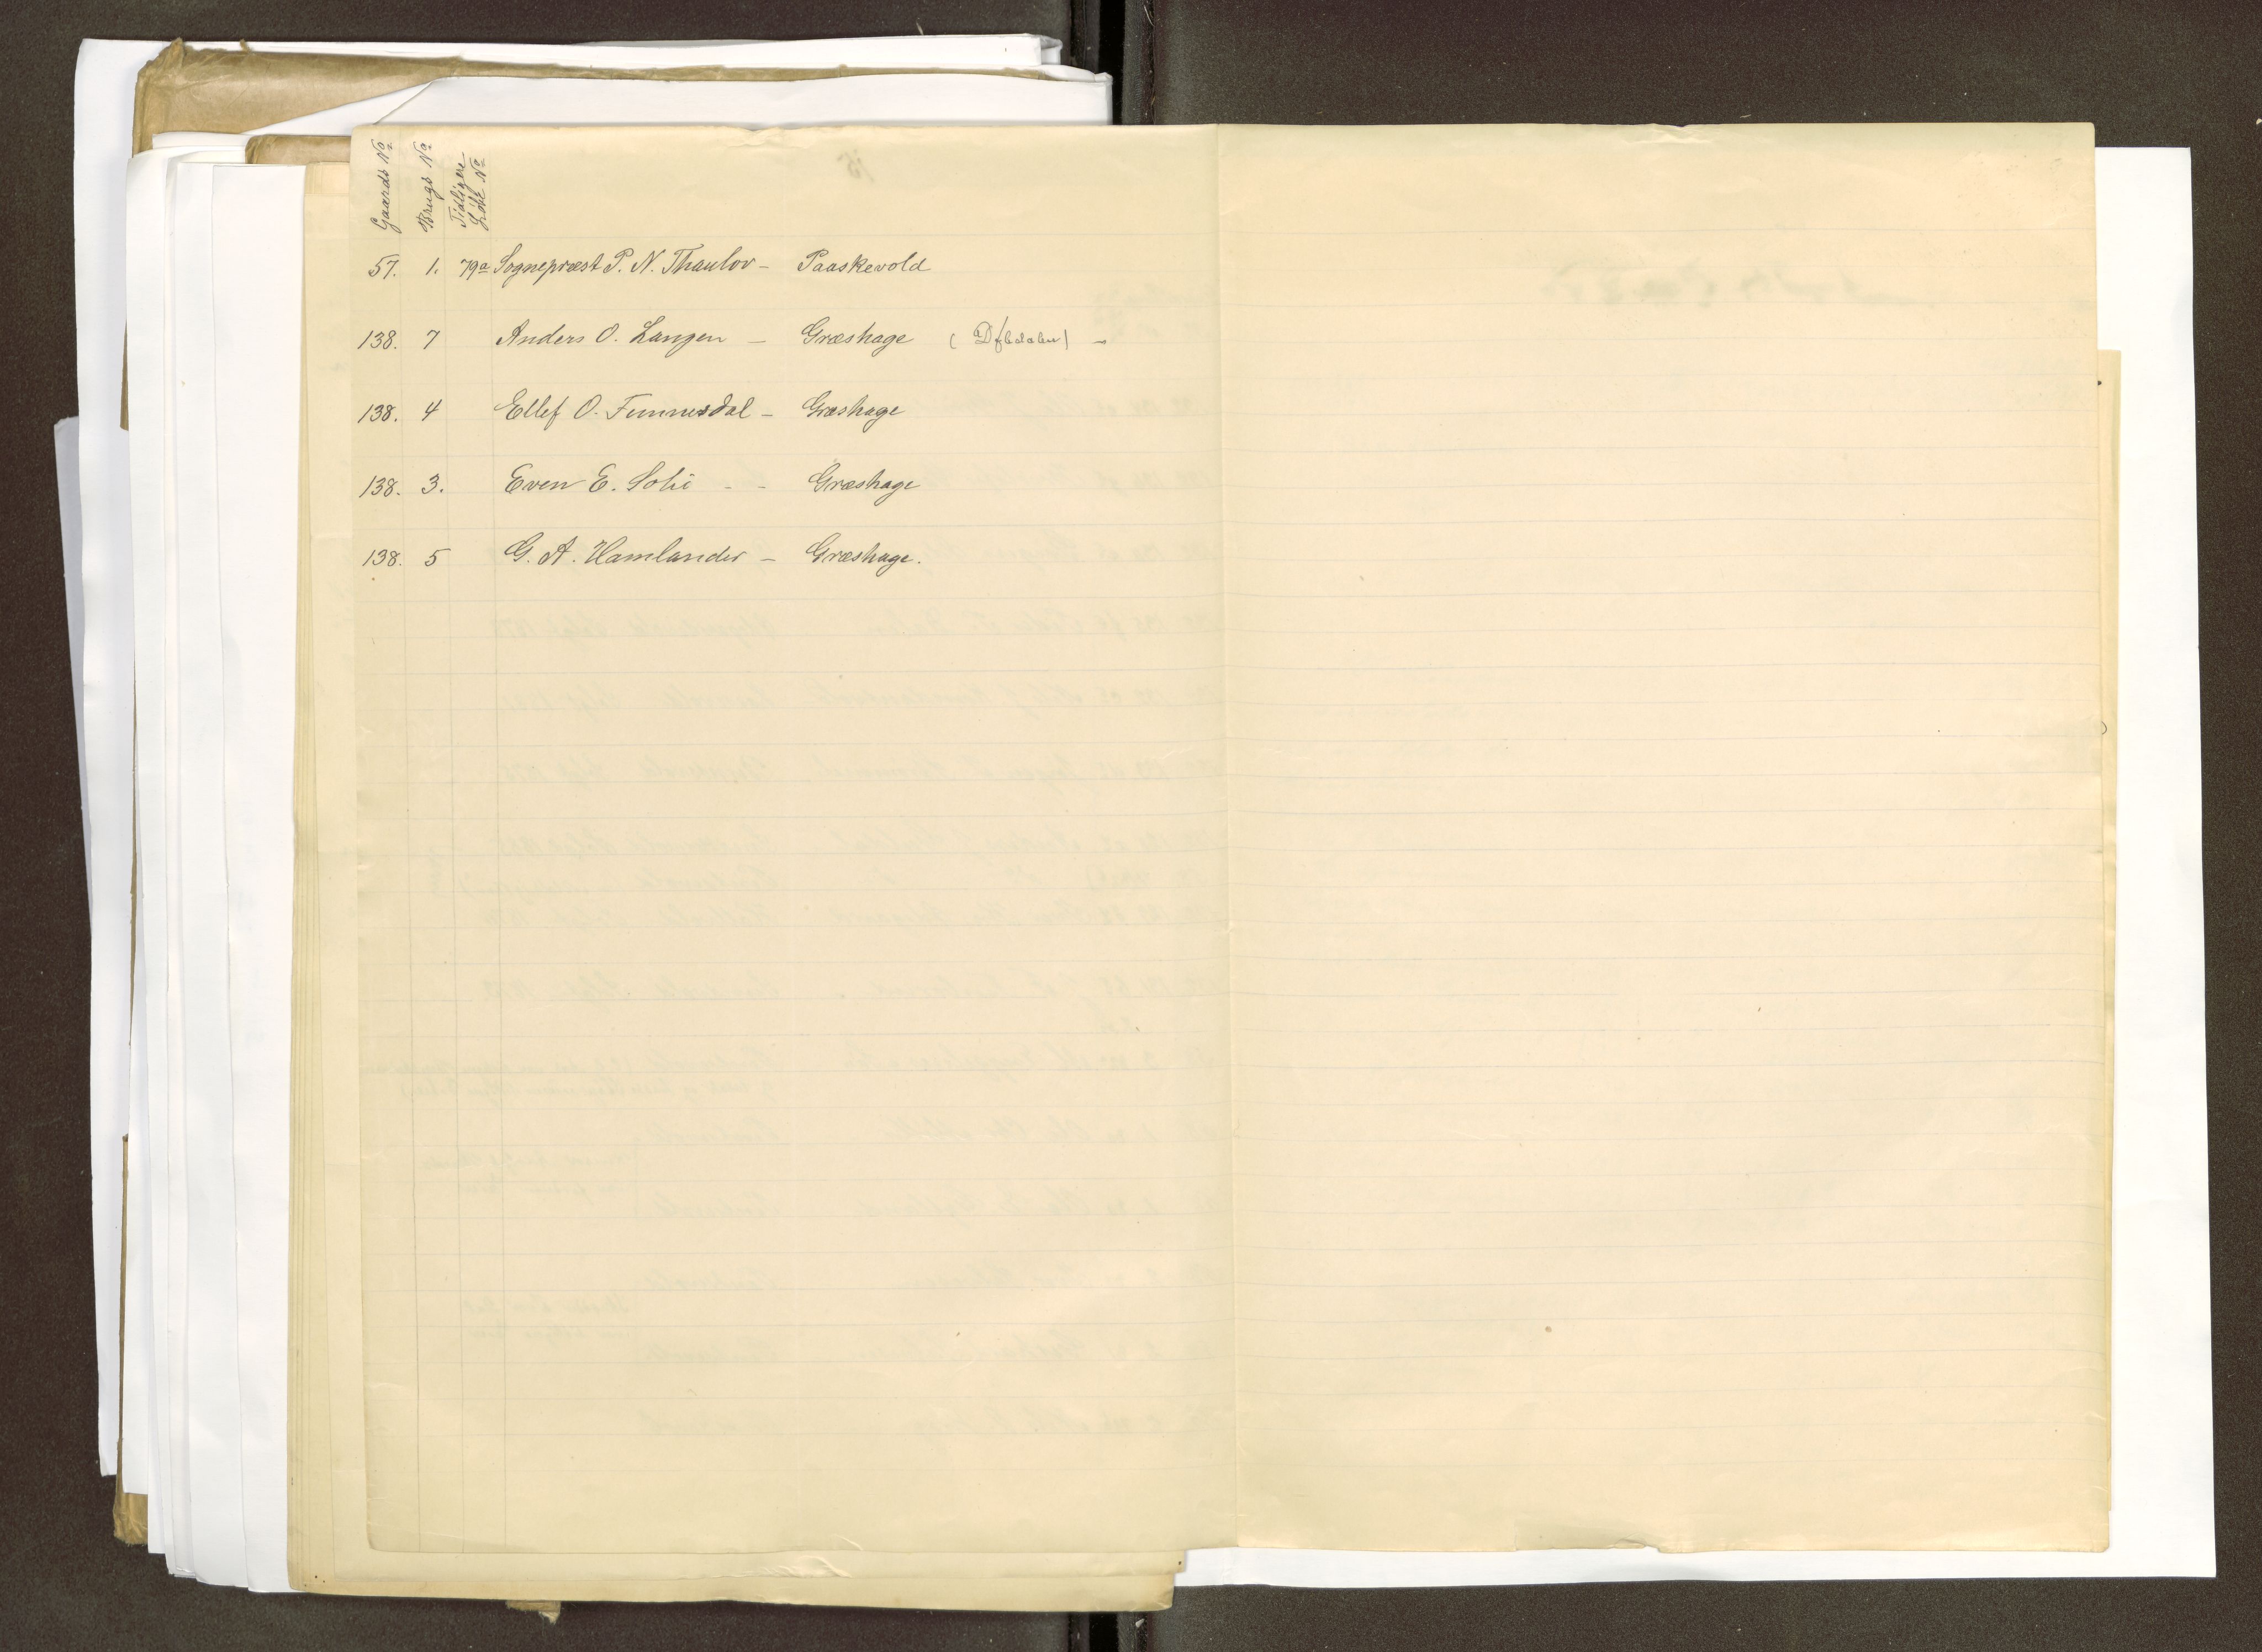 Gaards No
Brugs No
Tidligere
Löbe No
57. 1. 79a Sognepræst P. N. Thaulov - Paaskevold
138. 7 Anders O. Langen - Græshage
138. 4 Ellef O. Funnesdal - Græshage
138. 3. Even E. Solie - - Græshage
138. 5 G. A. Hamlander - Græshage.